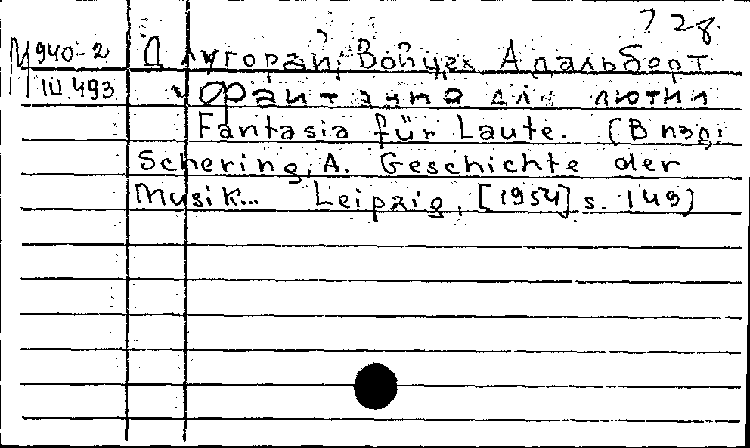 728
М 940-2 Длугорай, Войцех Адальберт
Ш 493 Фантазия для лютни
Fantasia für Laute. (В изд:
Schering, A. Geschichte der
Musik... Leipzig, [1954] s. 149)